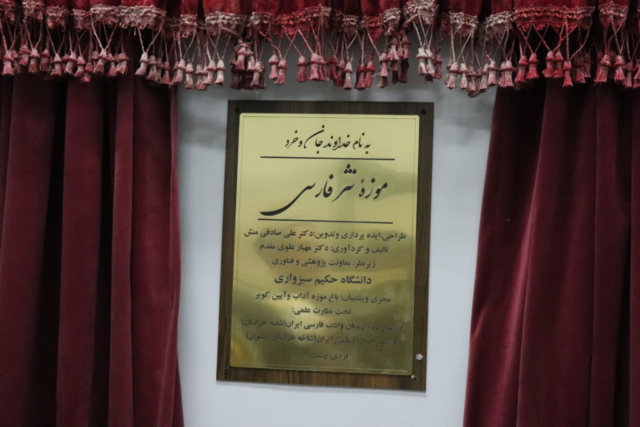 به نام خداوند جان و خرد
موزهٔ نثر فارسی
طراحی،ایده پردازی وتدوین:دکتر علی صادقی منش
تالیف و گردآوری: دکتر مهیار علوی مقدم
زیرنظر: معاونت پژوهشی و فناوری
دانشگاه حکیم سبزواری
مجری وپشتیبان: باغ موزه آداب وآیین کویر
تحت نظارت علمی:
زبان وادب فارسی ایران(شعبه خراسان)
ایران(شاخه خراسان رضوی)